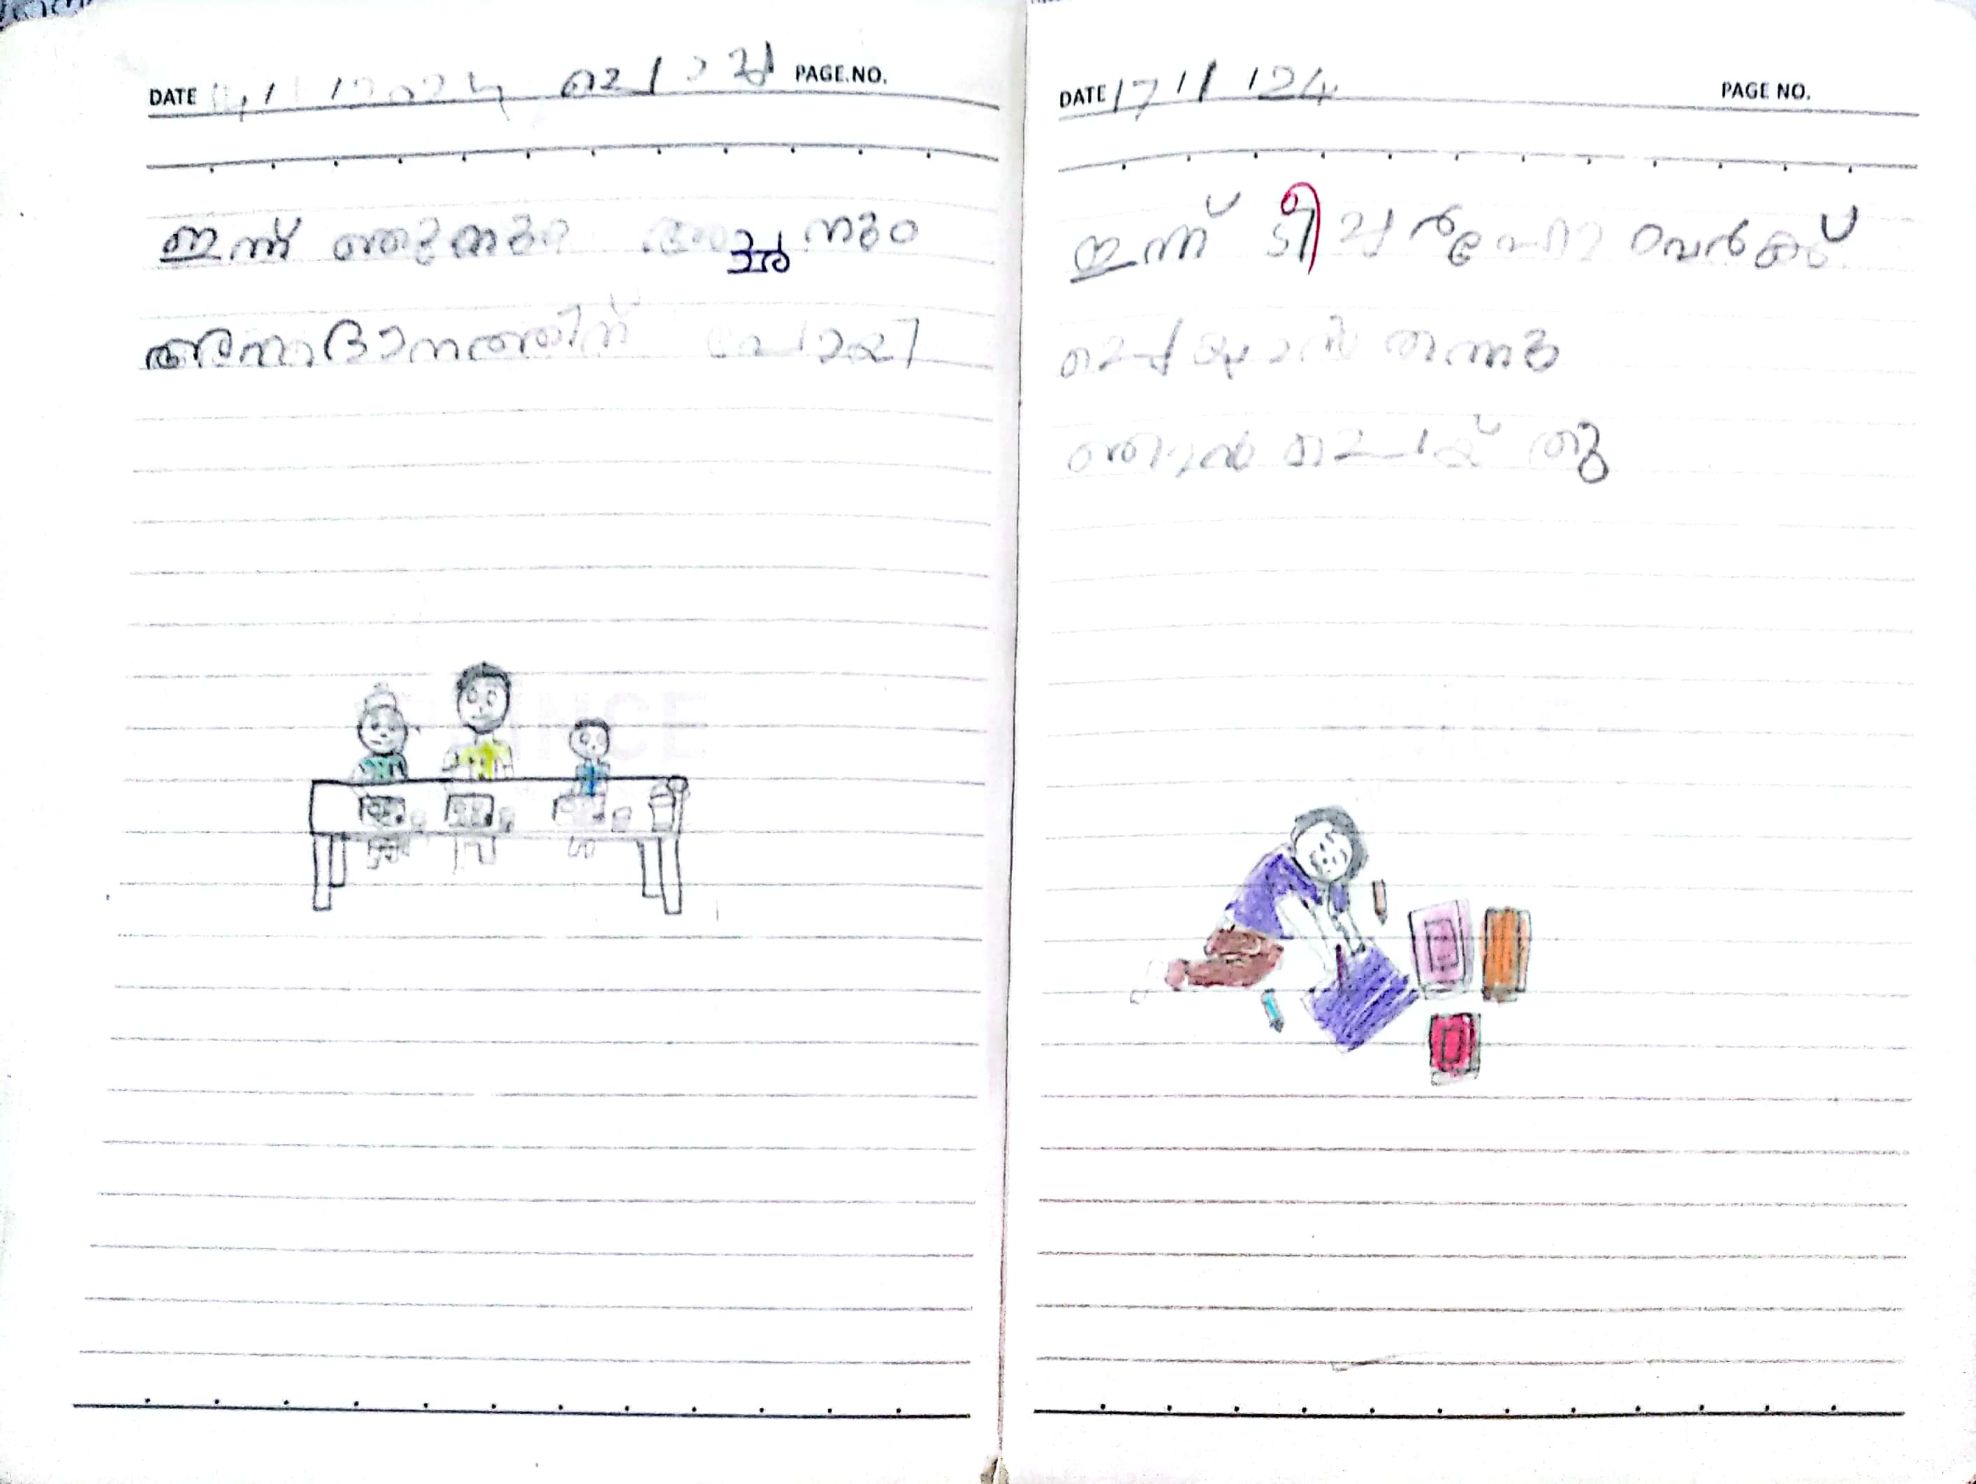 DATE 14/1/2024 PAGE.NO.
ഇന്ന് ഞാനും അച്ഛനും
അന്നദാനത്തിന് പോയി
DATE 17/1/24 PAGE NO.
ഇന്ന് ടീച്ചർ ഹോംവർക്ക്
ചെയ്യാൻ തന്നു
ഞാൻ ചെയ്തു